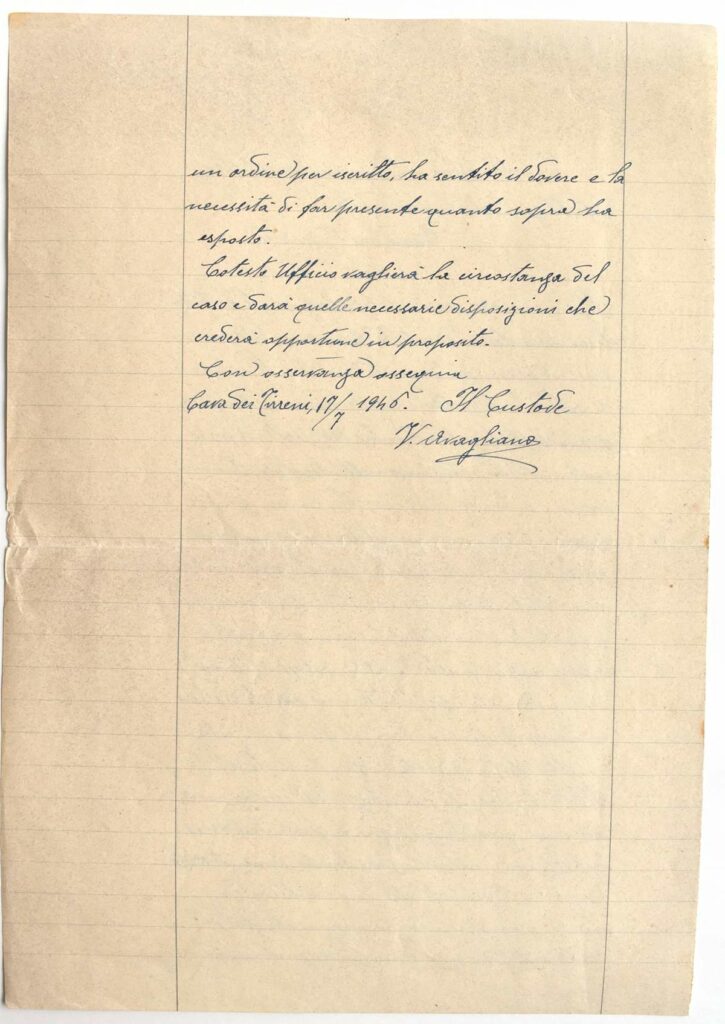 un ordine per iscritto, ha sentito il dovere e la
necessità di far presente quanto sopra ha
esposto.
Cotesto Ufficio vaglierà la circostanza del
caso e darà quelle necessarie disposizioni che
crederà opportune in proposito.
Con osservanza ossequia
Cava dei Tirreni, 17/7 1946. Il Custode
V. Avagliano